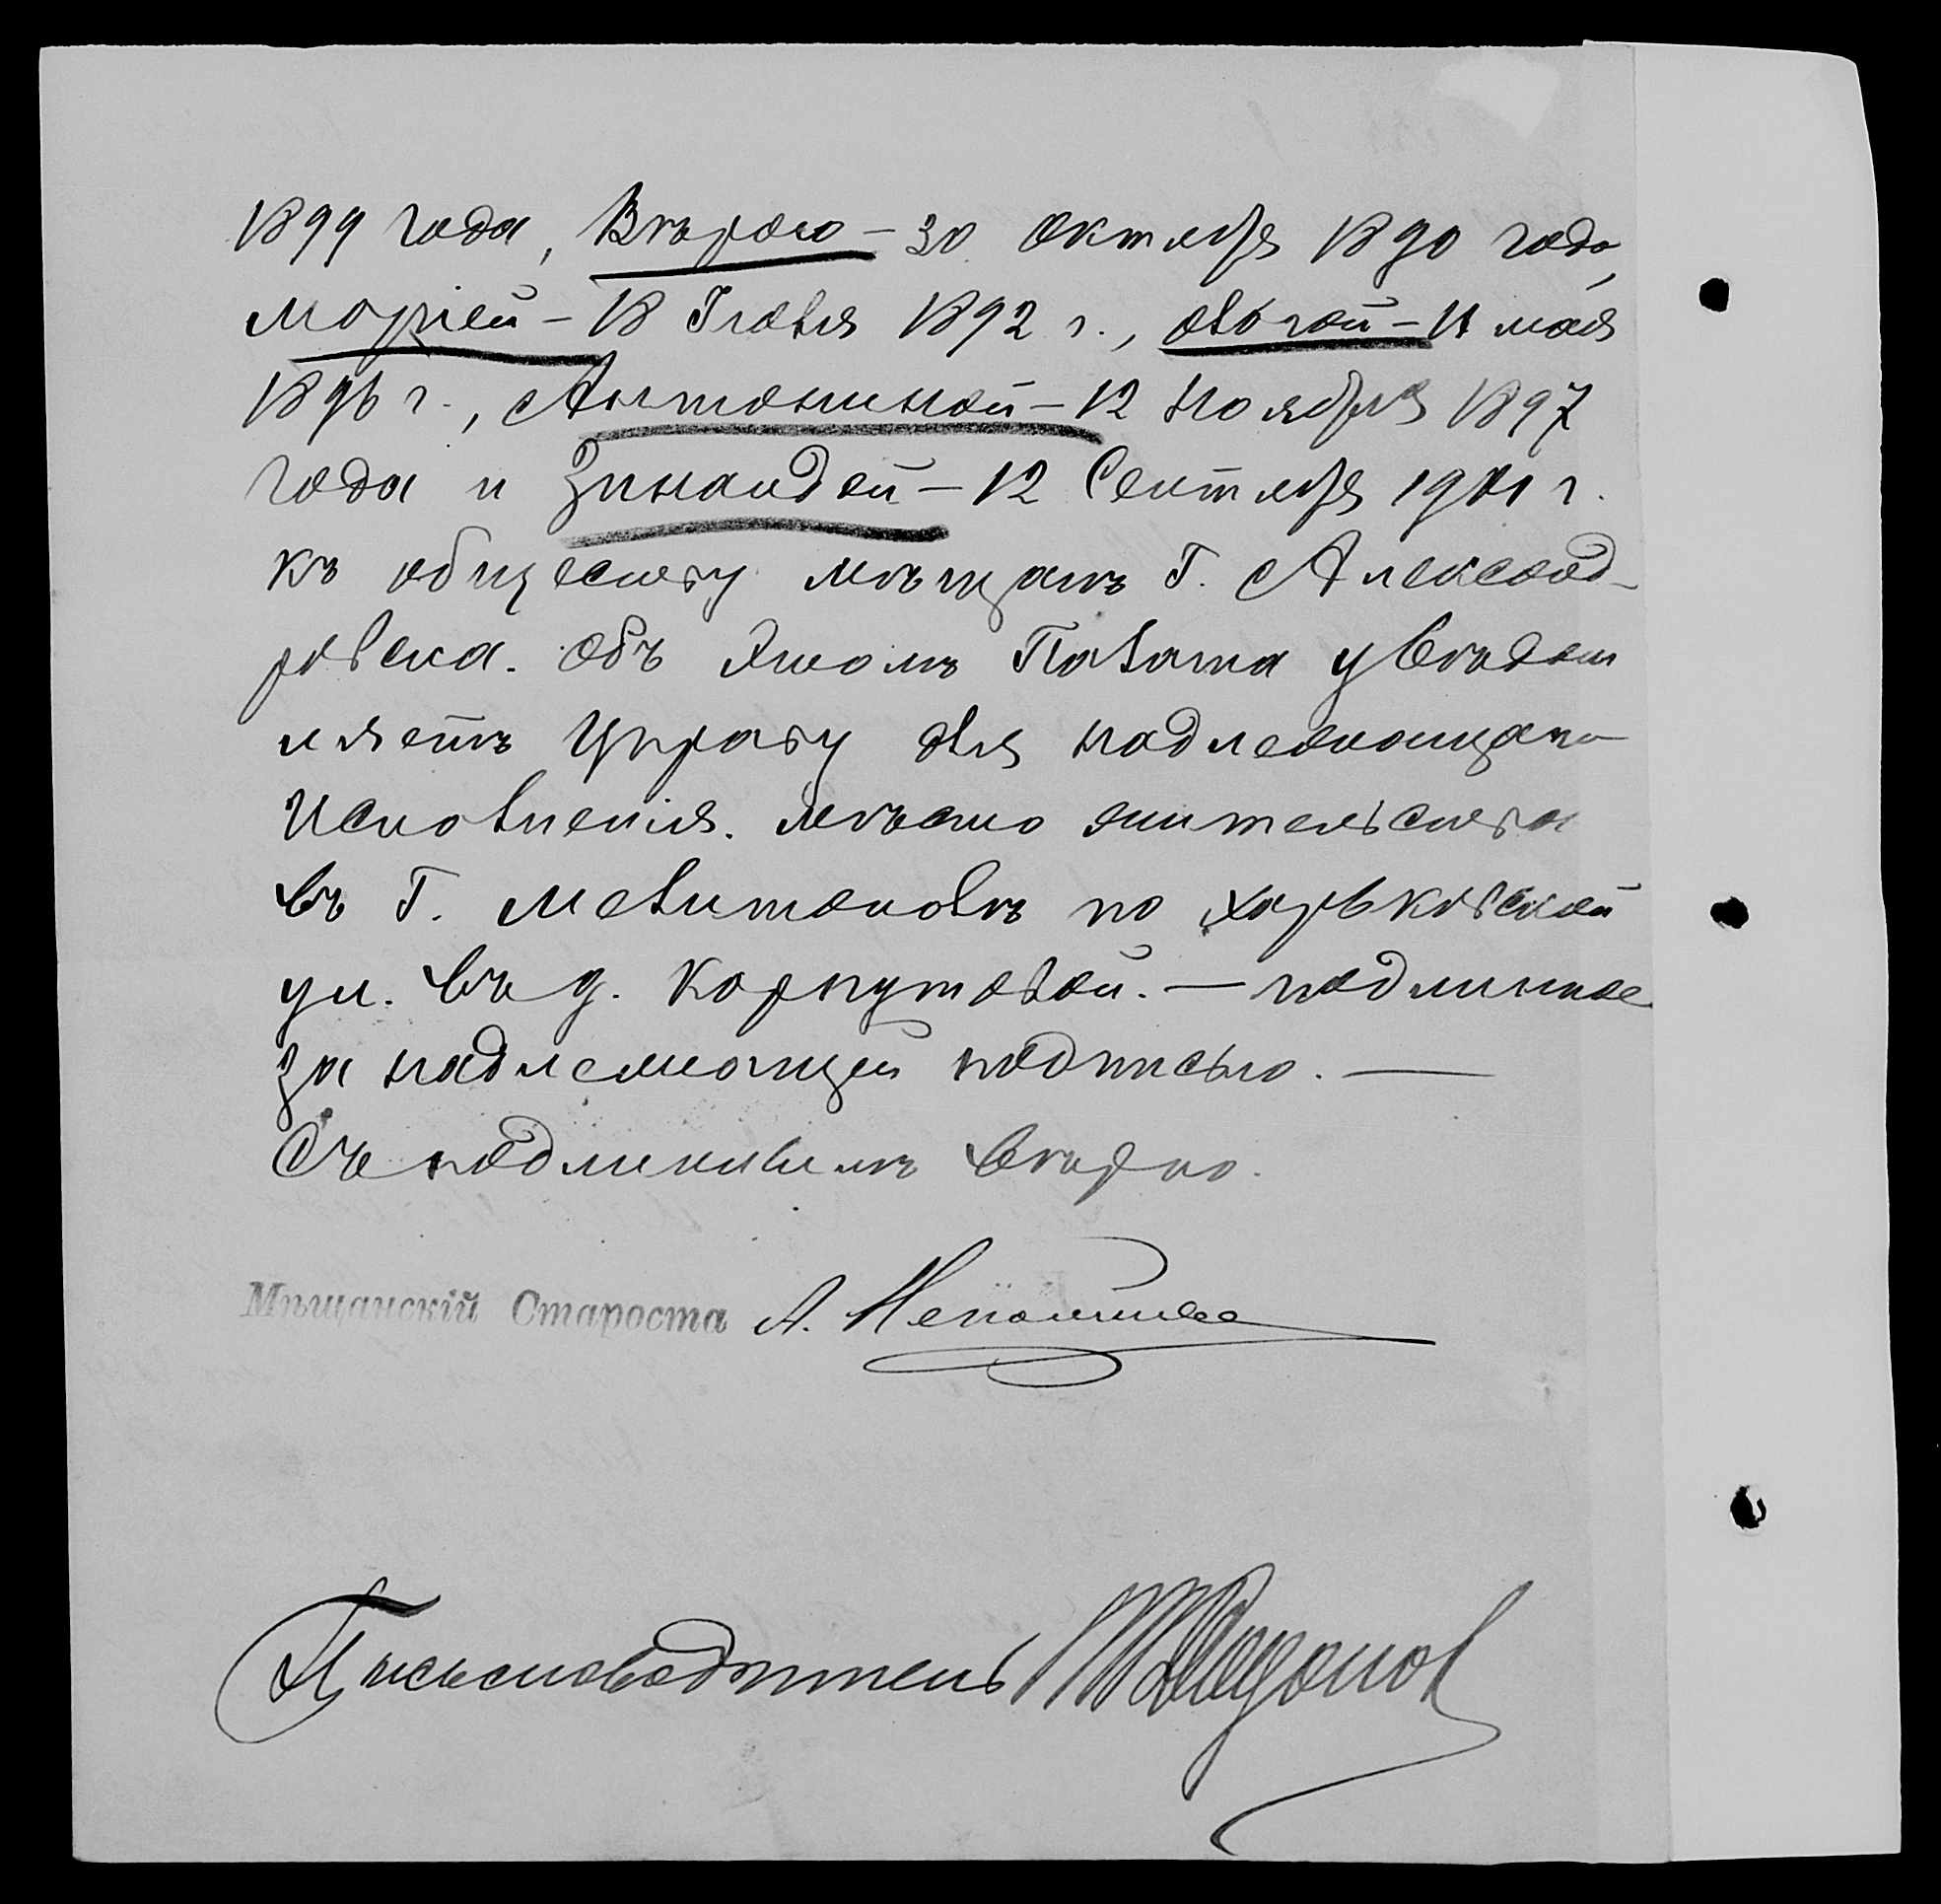 1899 года, Вѣрою – 30 Октября 1890 года,
Маріей – 18 Іюля 1892 г., Ольгой – 11 мая
1896 г., Антониной – 12 Ноября 1897
года и Зинаидой – 12 Сентября 1901 г.
къ обществу мѣщанъ г. Александ-
ровска. Объ этомъ Палата увѣдом
ляетъ Управу для надлежащаго
исполненія. Мѣсто жительства
въ г. Мелитополѣ по Харьковской
ул. въ д. Корпутовой. — подлинное
за надлежащей подписью. —
Съ подлиннымъ вѣрно.
Мѣщанскій Староста А.
Письмоводитель